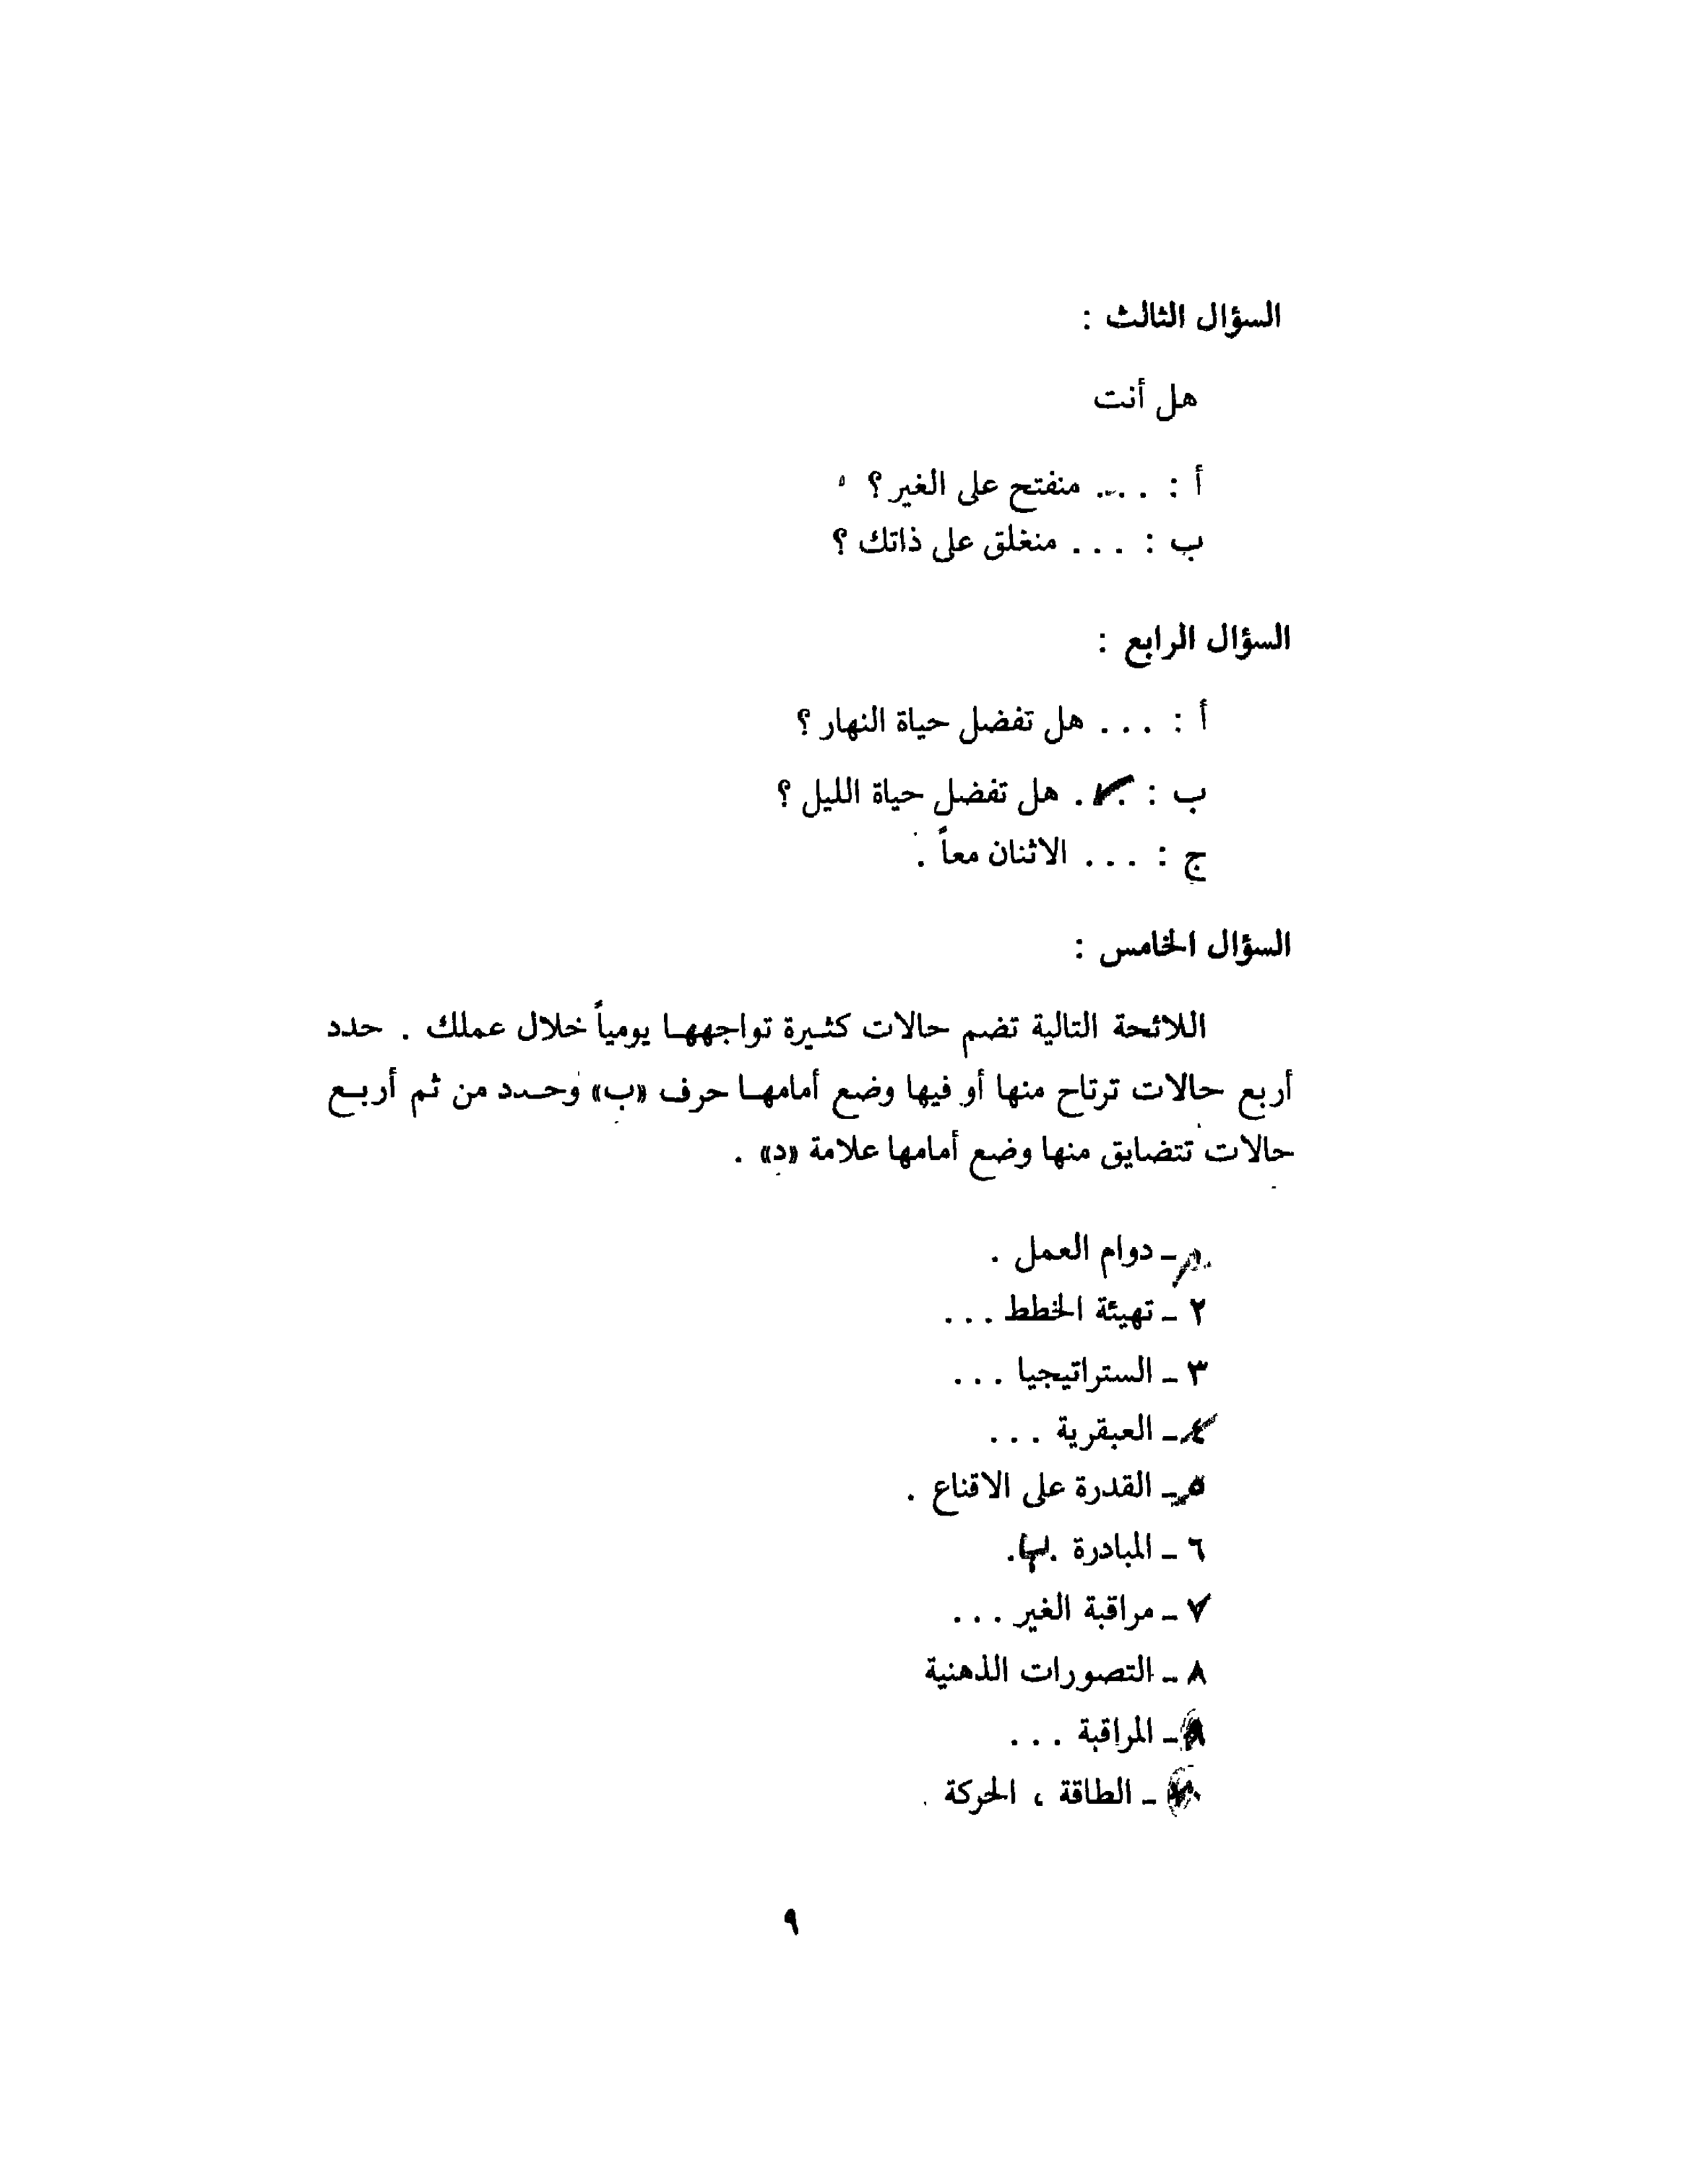 السؤال الثالث :
هل أنت
أ : . . . . منفتح على الغير ؟
ب : . . . منغلق على ذاتك ؟
السؤال الرابع :
أ : . . . هل تفضل حياة النهار ؟
ب : . ✓ . هل تفضل حياة الليل ؟
ج : . . . الاثنان معاً .
السؤال الخامس :
اللائحة التالية تضم حالات كثيرة تواجهها يومياً خلال عملك . حدد
أربع حالات ترتاح منها أو فيها وضع أمامها حرف «ب» وحدد من ثم أربع
حالات تتضايق منها وضع أمامها علامة «د» .
١ - دوام العمل .
٢ - تهيئة الخطط . . .
٣ - الستراتيجيا . . .
٤ - العبقرية . . .
٥ - القدرة على الاقناع .
٦ - المبادرة . ب .
٧ - مراقبة الغير . . .
٨ - التصورات الذهنية
٩ - المراقبة . . .
١٠ - الطاقة ، الحركة .
٩